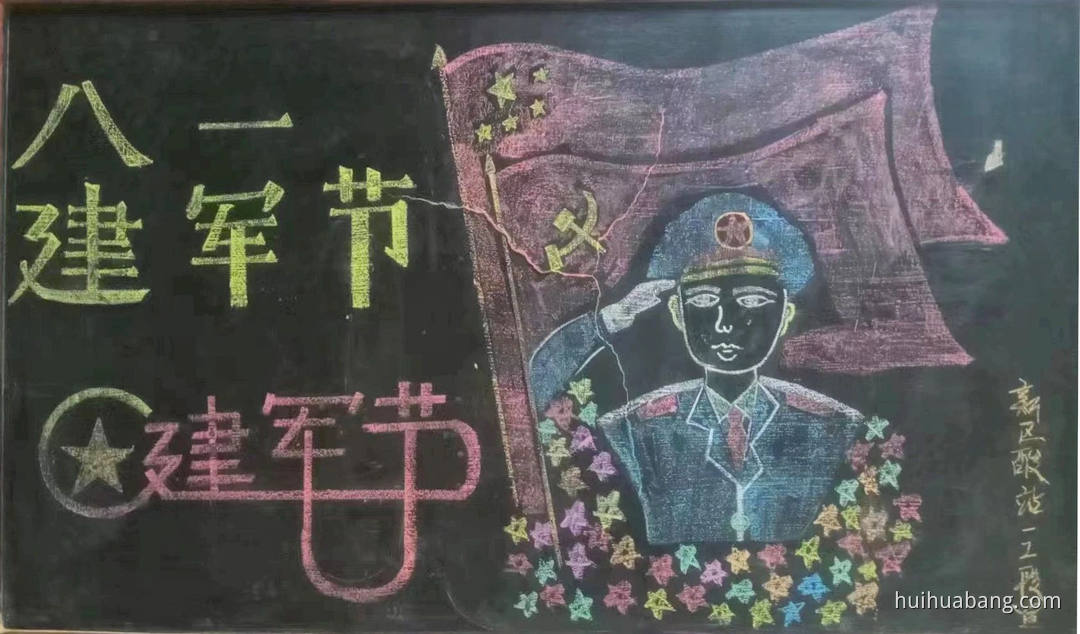 八一
建军节
建军节
新区酸站一工段宣
huihuabang.com